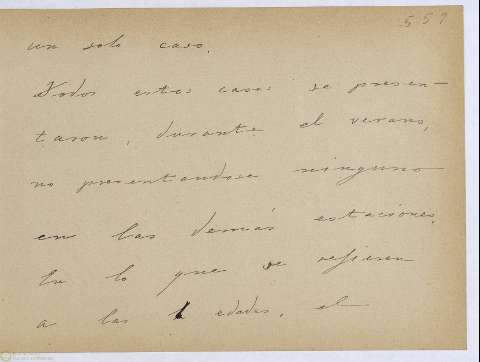 559
un solo caso.
Todos estos casos se presen-
taron, durante el verano,
no presentandose ninguno
en las demás estaciones.
En lo que se refieren
a las edades, el